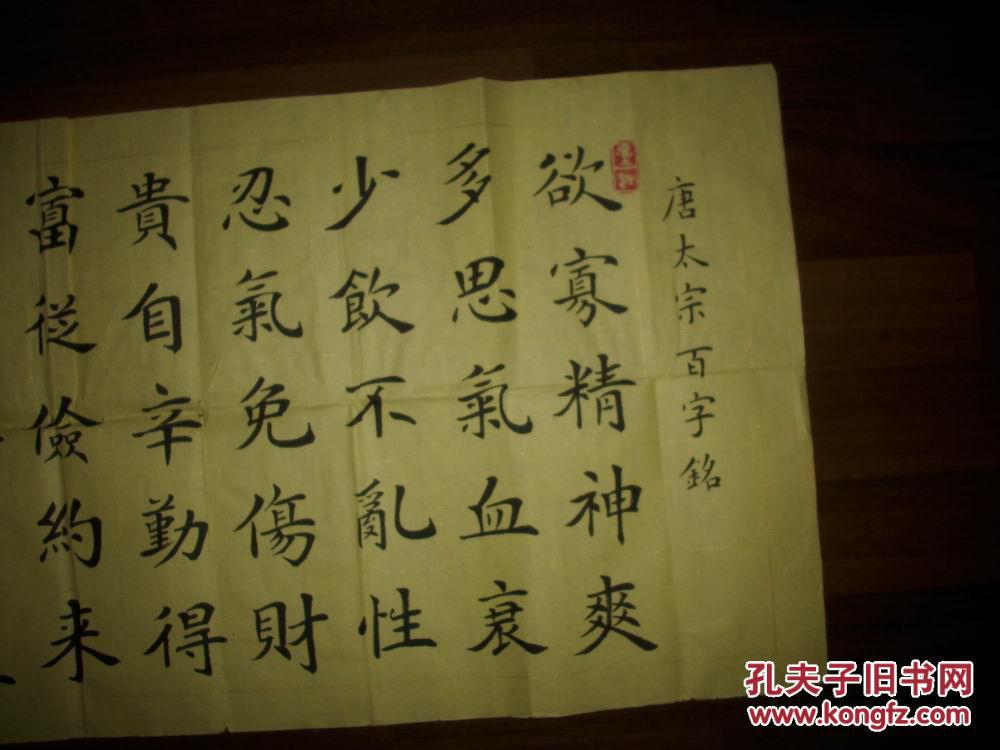 唐太宗百字銘
欲寡精神爽
多思氣血衰
少飲不亂性
忍氣免傷財
貴自辛勤得
富從儉約来
孔夫子旧书网
www.kongfz.com